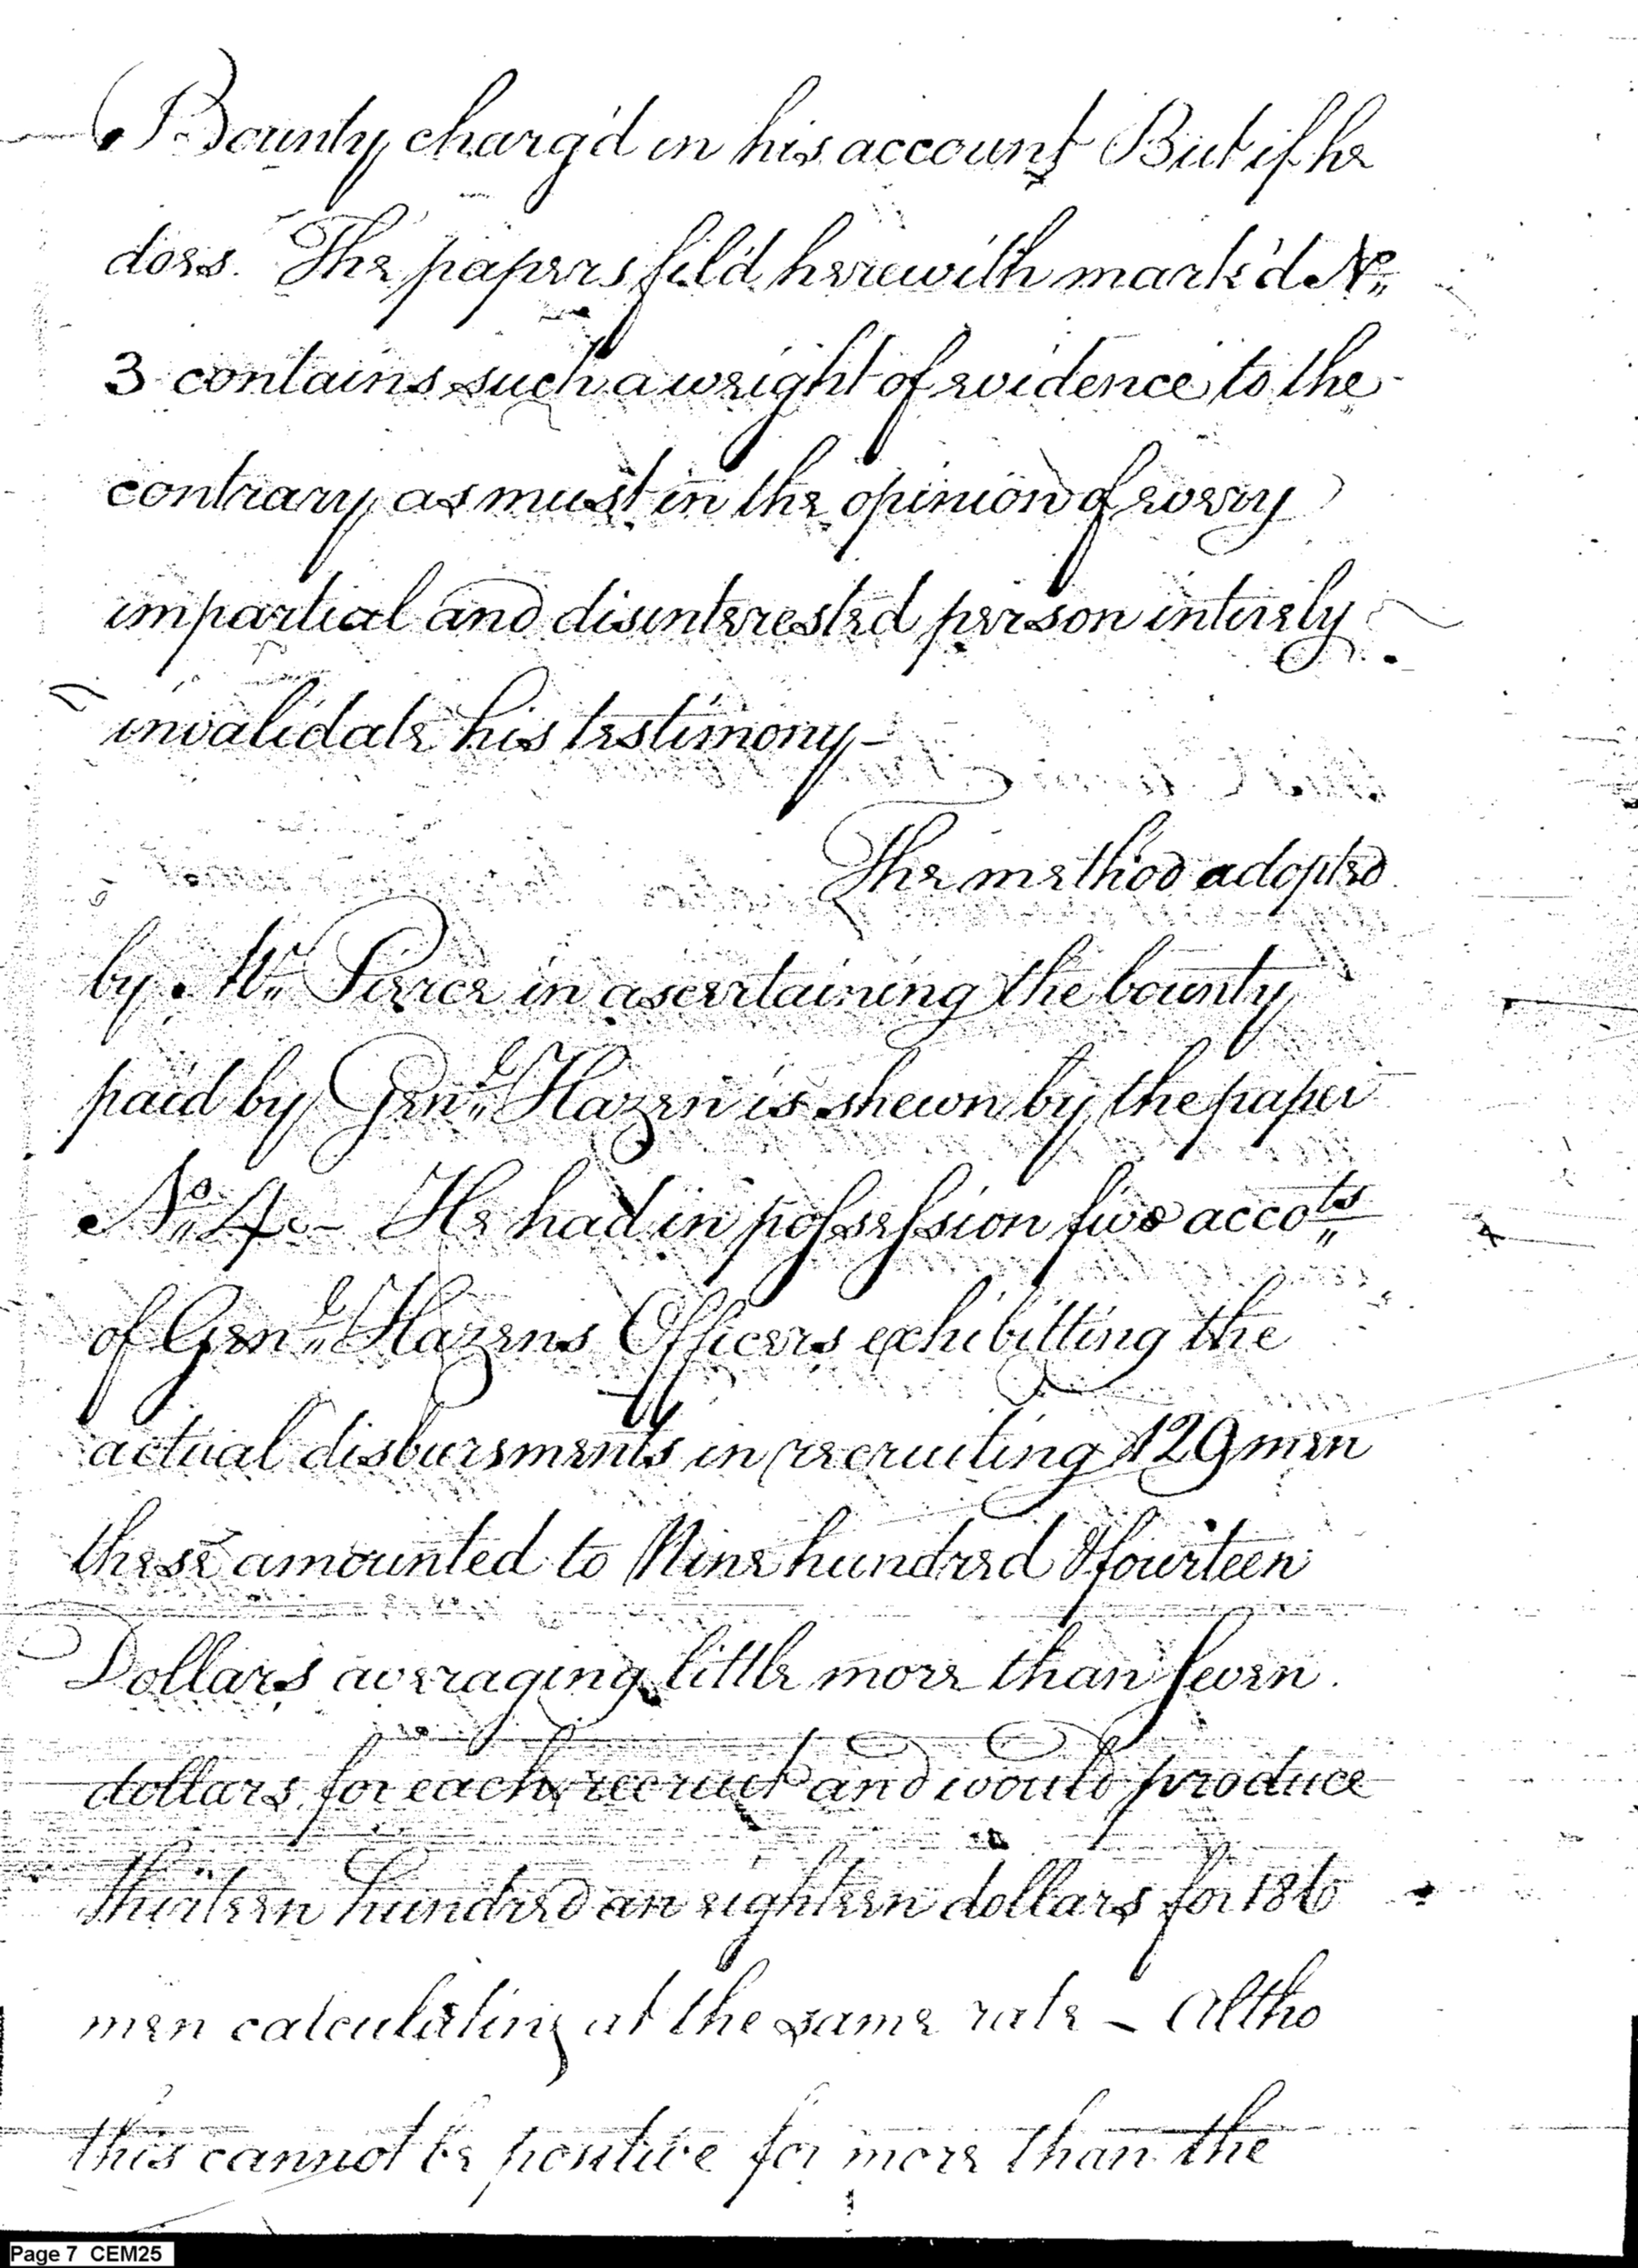 Bounty charg'd in his account But if he
does. The papers fil'd herewith mark'd No
3 contains such a weight of evidence to the
contrary as must in the opinion of every
impartial and disinterested person intirely
invalidate his testimony –
The method adopted
by Mr Pierce in ascertaining the bounty
paid by Genl Hazen is shewn by the paper
No 4 – He had in possession five accots
of Genl Hazens Officers exhibitting the
actual disbursments in recruiting 129 men
these amounted to Nine hundred & fourteen
Dollars averaging little more than seven
dollars for each recruit and would produce
thirteen hundred an eighteen dollars for 186
men calculating at the same rate – Altho
this cannot be positive for more than the
Page 7 CEM25